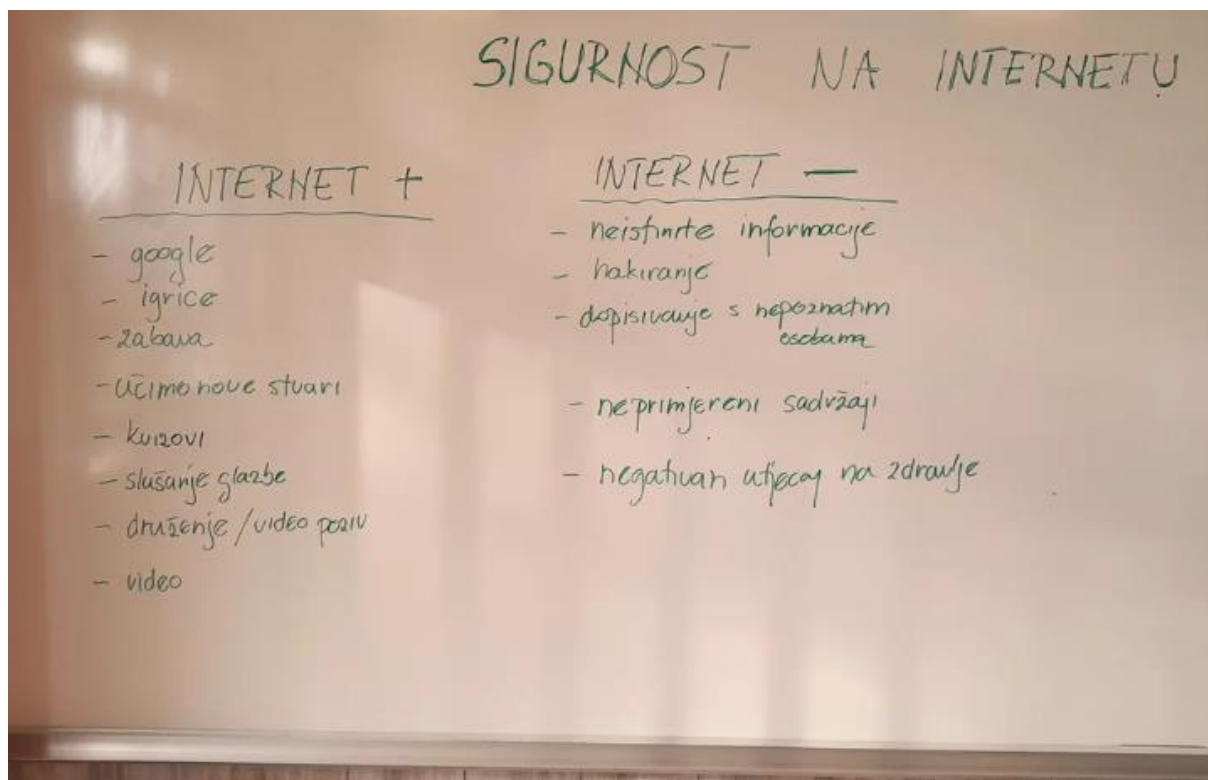 SIGURNOST NA INTERNETU
INTERNET +
- google
- igrice
- zabava
- učimo nove stvari
- kvizovi
- slušanje glazbe
- druženje / video poziv
- video
INTERNET -
- neistinite informacije
- hakiranje
- dopisivanje s nepoznatim
osobama
- neprimjereni sadržaji
- negativan utjecaj na zdravlje